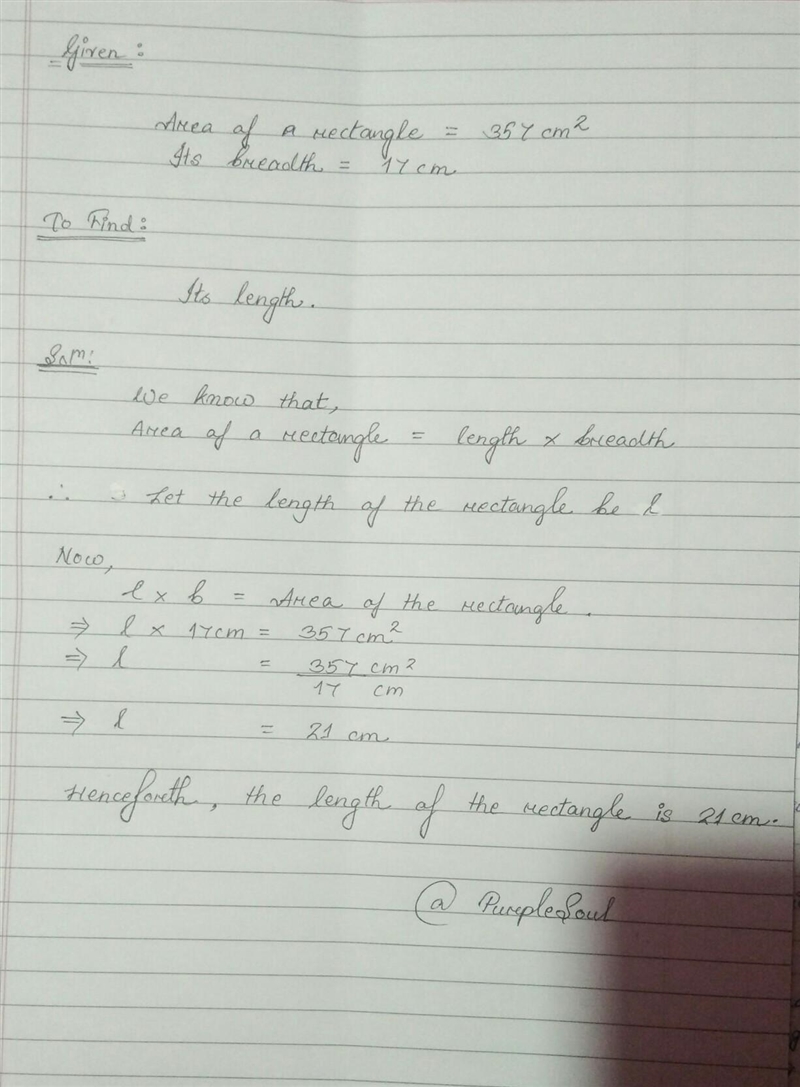 Given :
Area of a rectangle = 357 cm²
Its breadth = 17 cm
To Find:
Its length.
Soln:
We know that,
Area of a rectangle = length × breadth
∴ Let the length of the rectangle be l
Now,
l × b = Area of the rectangle.
⇒ l × 17cm = 357 cm²
⇒ l = 357 cm²
17 cm
⇒ l = 21 cm
Henceforth, the length of the rectangle is 21 cm.
@ PurpleSoul